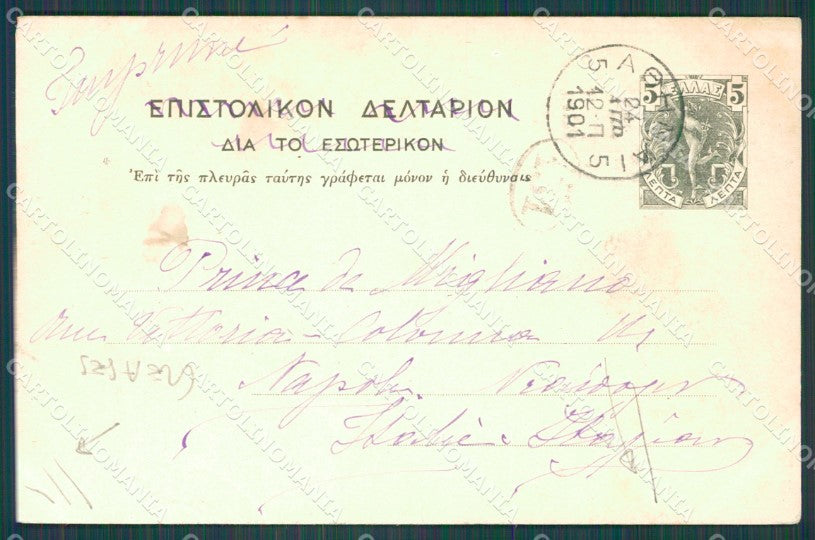 Imprimé
ΕΠΙΣΤΟΛΙΚΟΝ ΔΕΛΤΑΡΙΟΝ
ΔΙΑ ΤΟ ΕΣΩΤΕΡΙΚΟΝ
Ἐπὶ τῆς πλευρᾶς ταύτης γράφεται μόνον ἡ διεύθυνσις
ΑΘΗΝΑΙ
5 5
24
ΑΠΡ
12-Π
1901
5 ΕΛΛΑΣ 5
ΛΕΠΤΑ ΛΕΠΤΑ
Prince de Migliano
Vittoria Colonna
Napoli
Italie
CARTOLINOMANIA